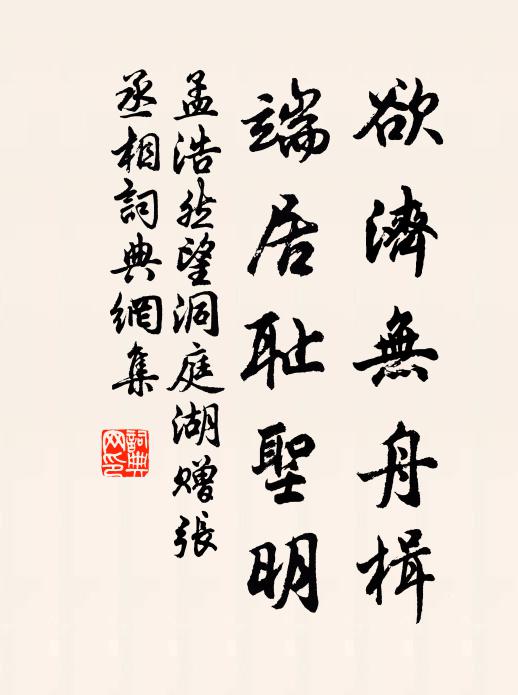 欲濟無舟楫
端居耻聖明
孟浩然望洞庭湖贈張
丞相詞典網集
詞典
网印